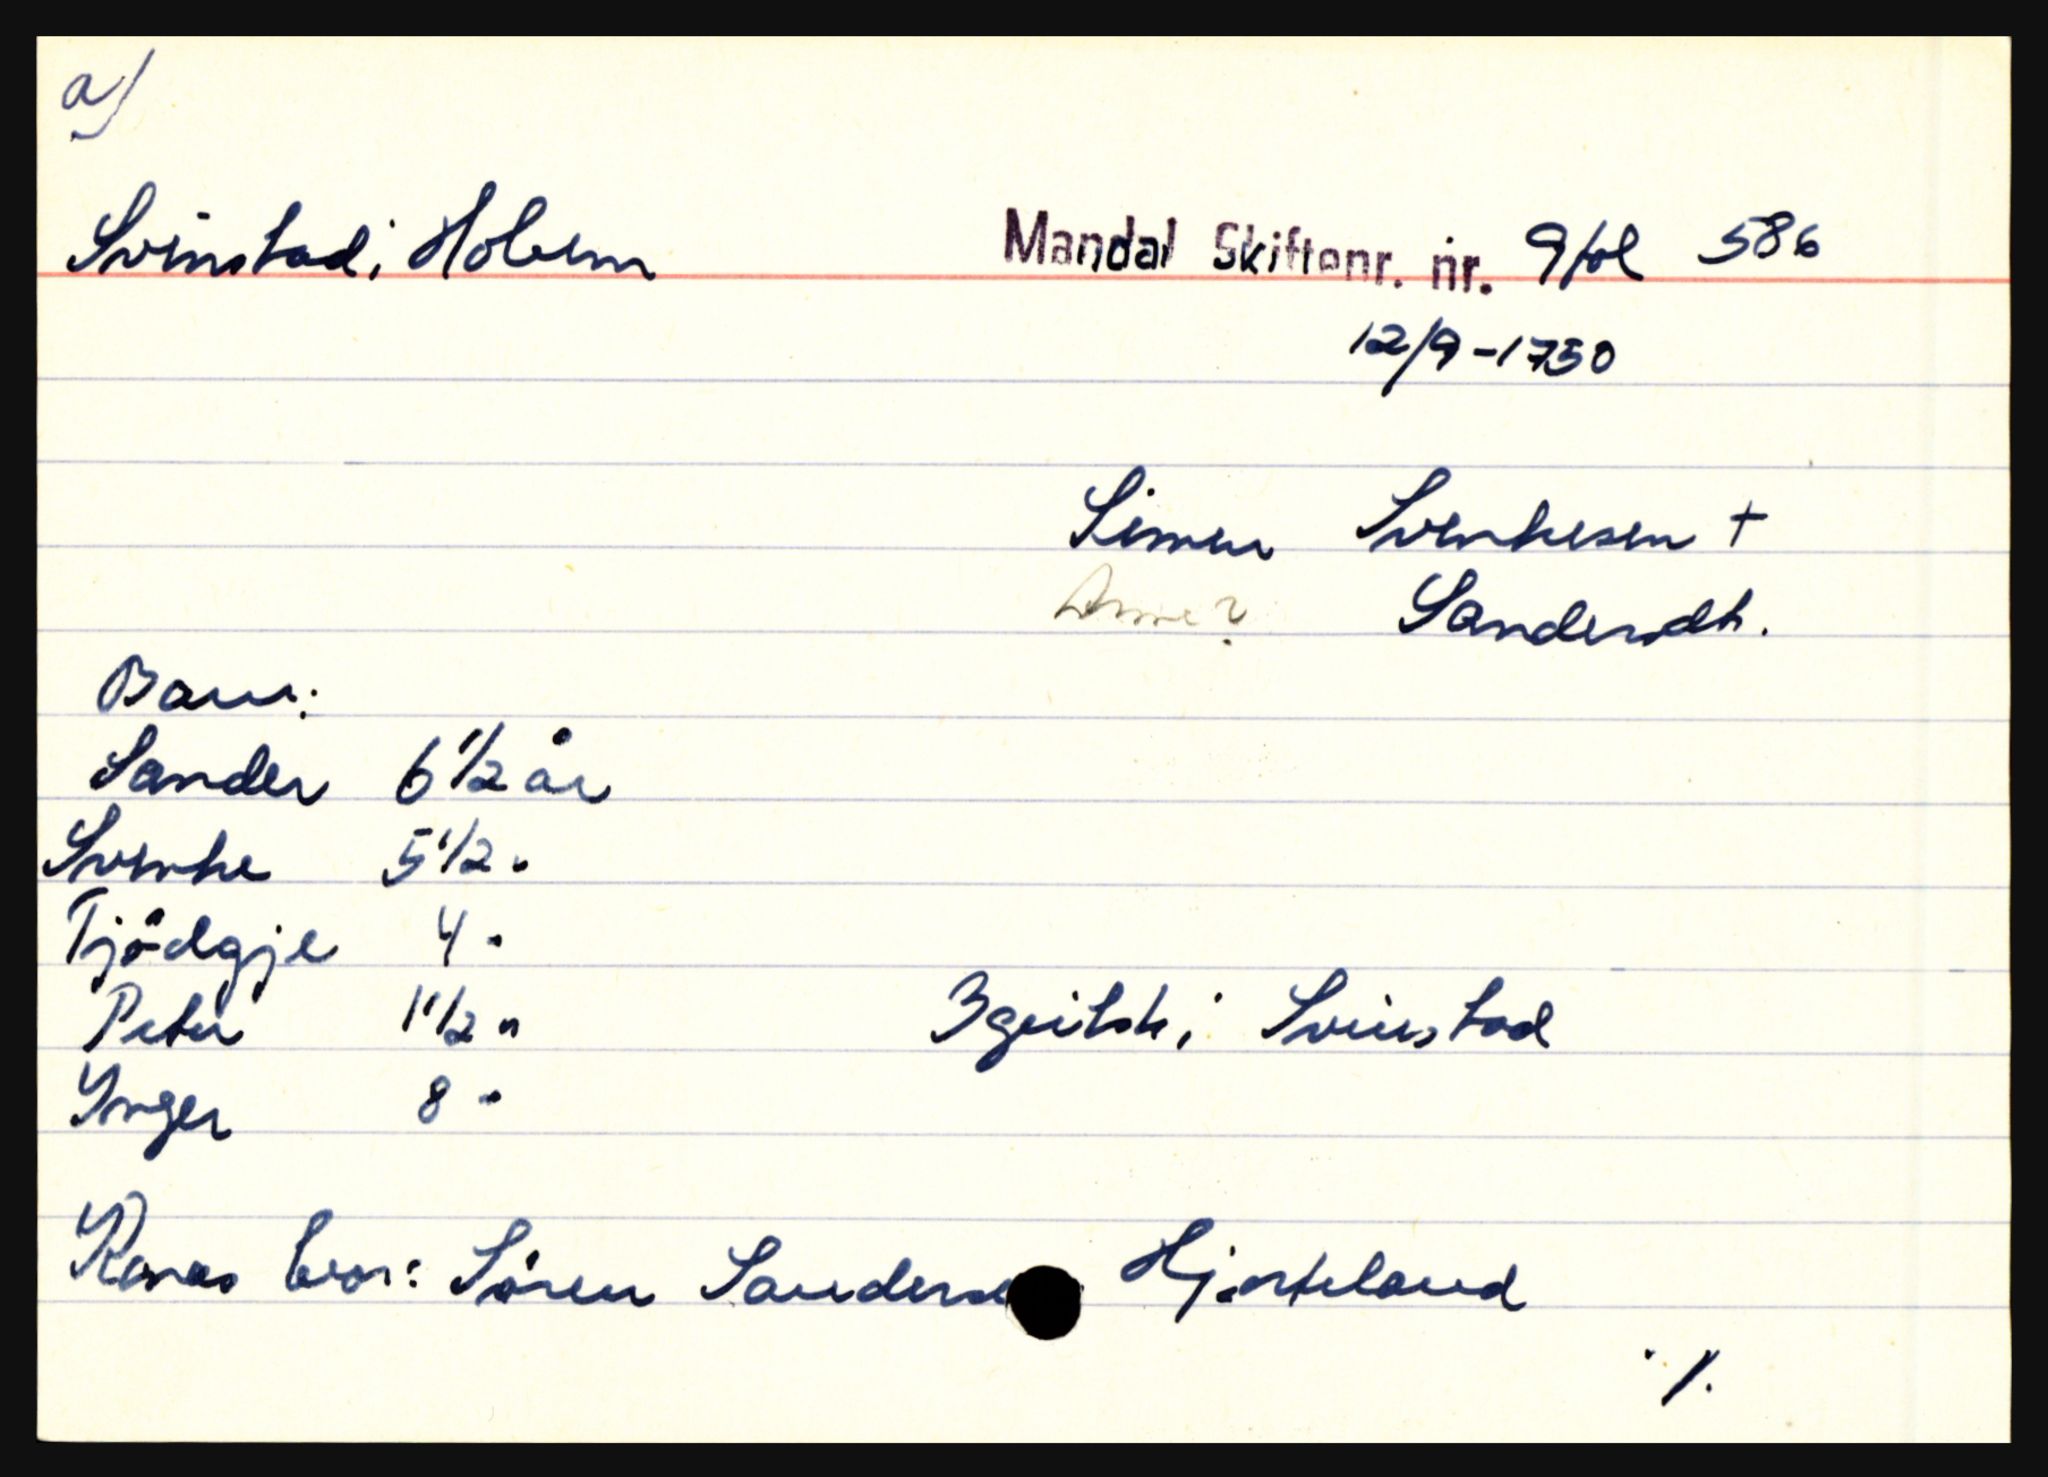 a)
Svinstad i Holum
Mandal Skiftenr. nr. 9 fol 586
12/9-1750
Simen Svenkesen +
Anne? Sandersdt.
Barn:
Sander 6 1/2 år
Svenke 5 1/2 "
Tjödgje 4 "
Peter 1 1/2 " 3 geitsk i Svinstad
Ynger 8 "
Konas bror: Sören Sanders Hjorteland
./.